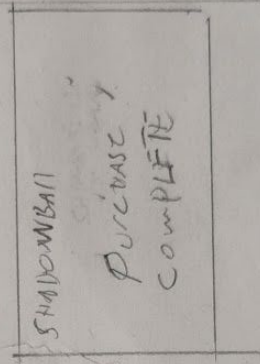 SHADOWBALL
PURCHASE
COMPLETE